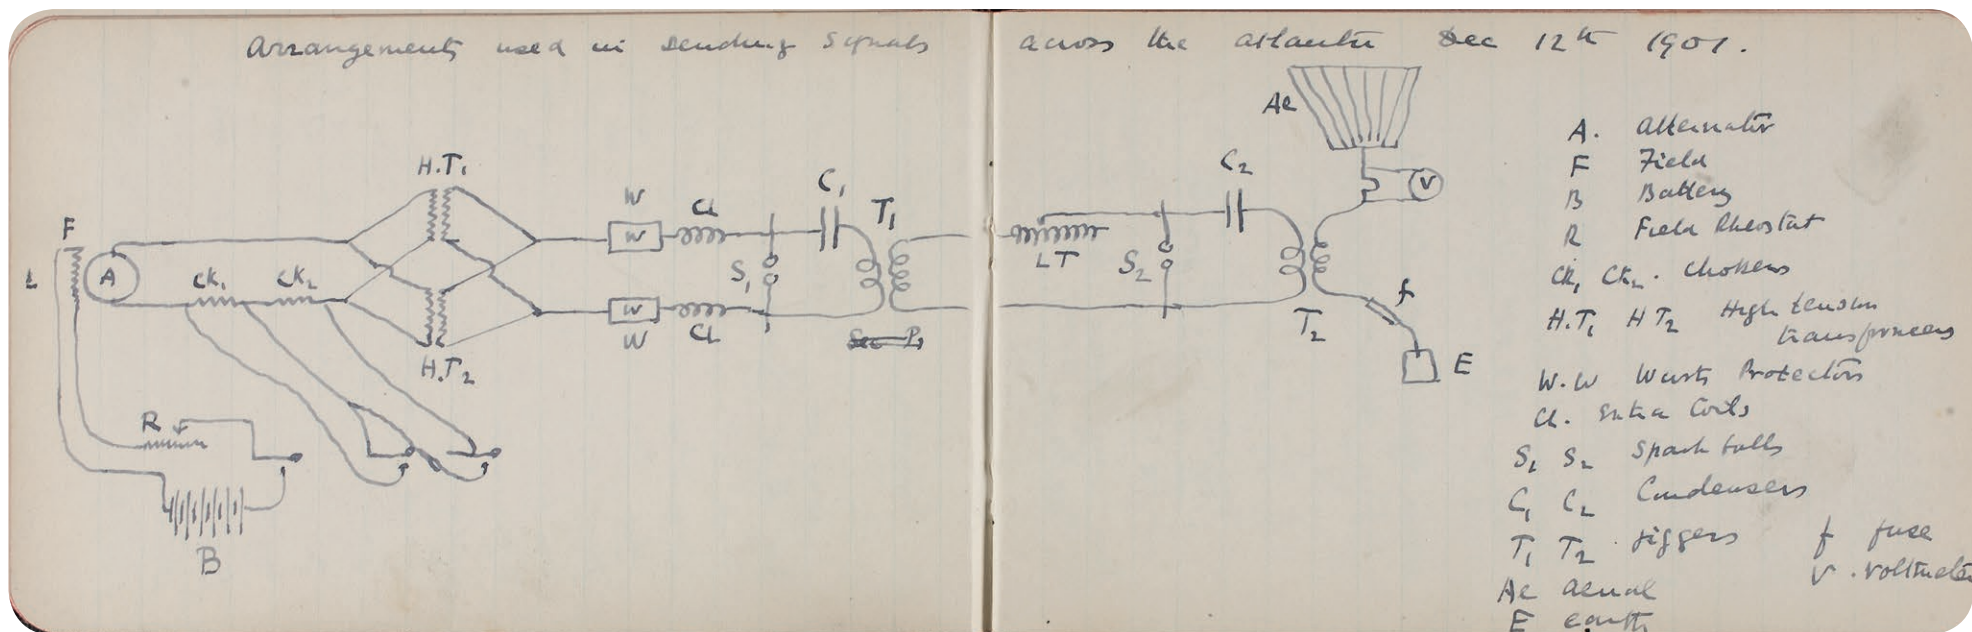 Arrangements used in sending signals across the atlantic Dec 12th 1901.
Ae
H.T1
W
W
Cl
C1
T1
C2
V
F
A
CK1
CK2
S1
LT
S2
W
W
Cl
T2
f
E
H.T2
R
B
A. alternator
F Field
B Battery
R Field Rheostat
CK1 CK2. Chokers
H.T1 HT2 High tension
transformers
W.W Protectors
Cl. Extra Coils
S1 S2 Spark balls
C1 C2 Condensers
T1 T2 jiggers
f fuse
V. voltmeter
Ae aerial
E earth